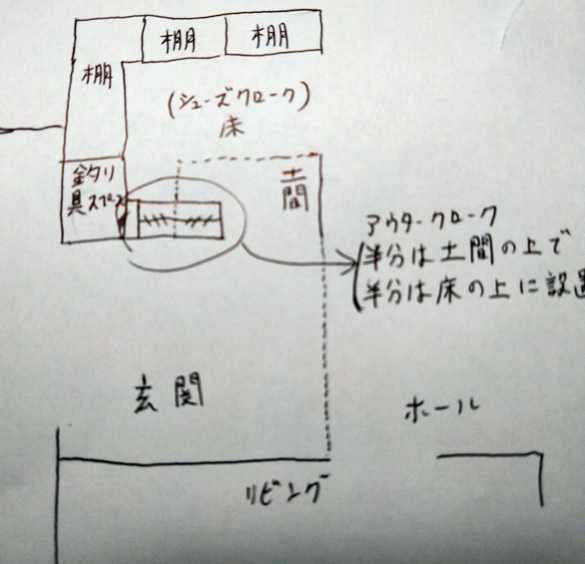 棚
棚
棚
(シューズクローク)
床
釣り
具スペース
土
間
アウタークローク
半分は土間の上で
半分は床の上に設置
玄関
ホール
リビング